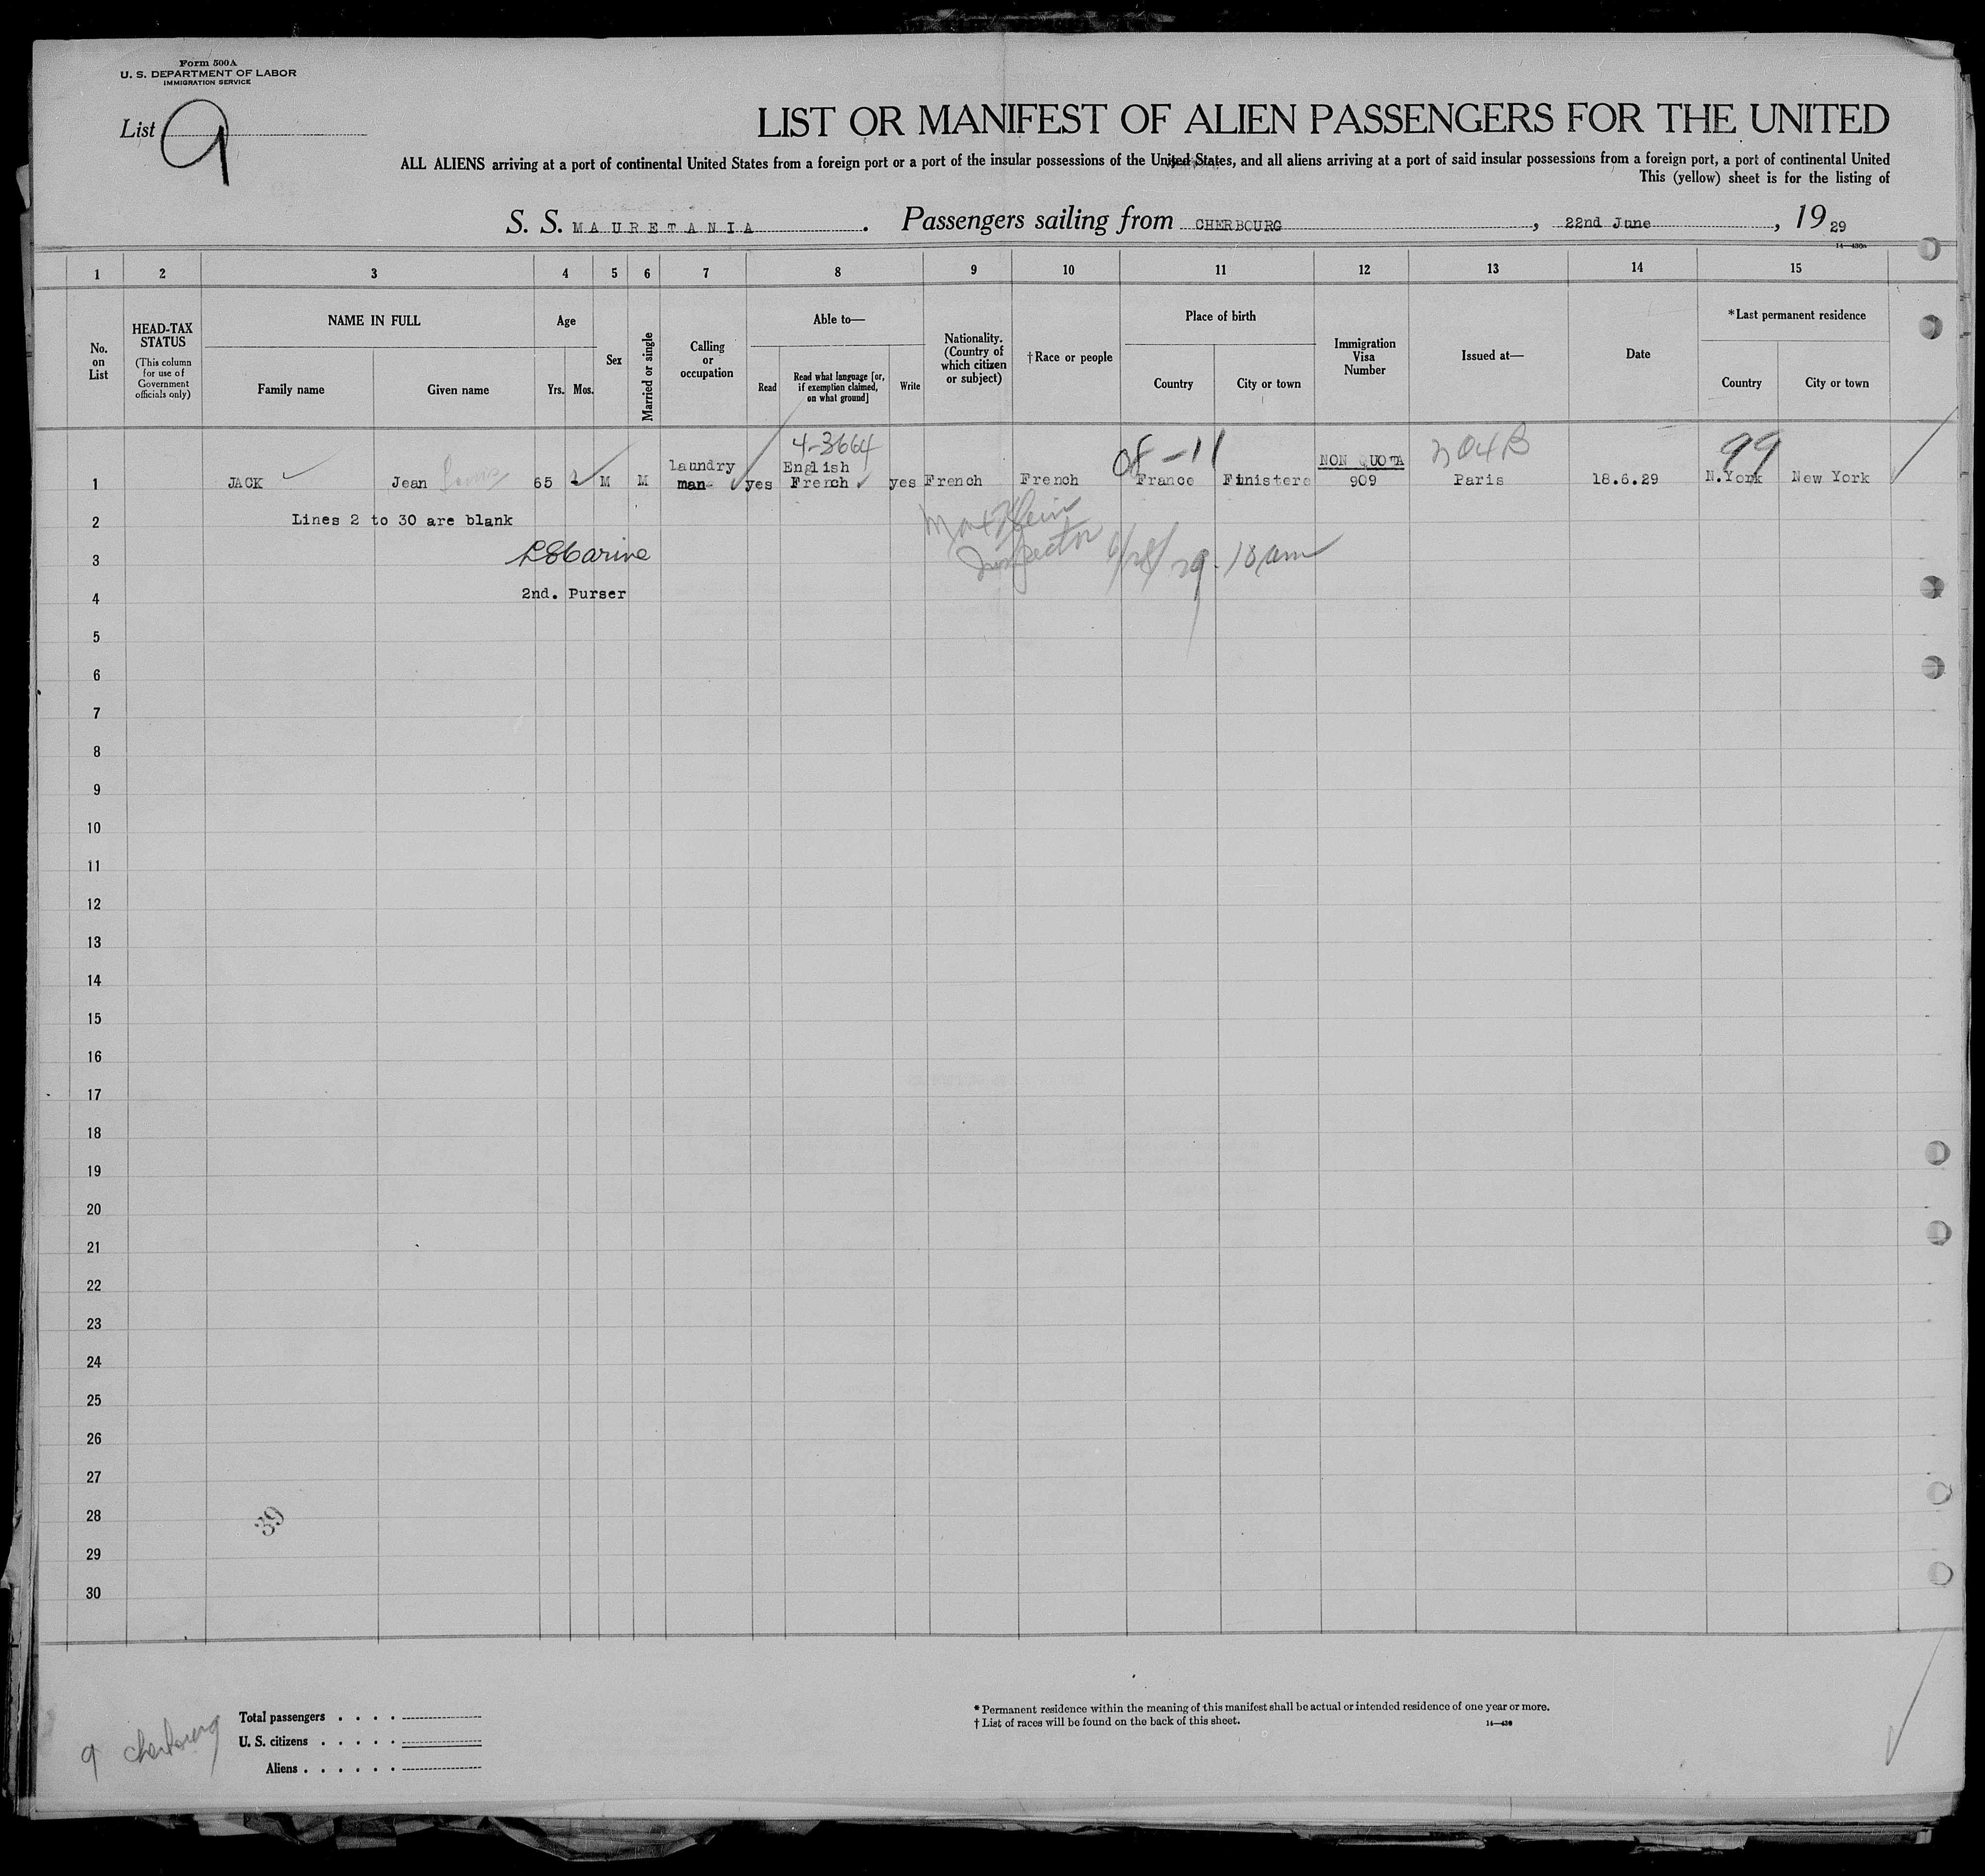 Form 500A
U. S. DEPARTMENT OF LABOR
IMMIGRATION SERVICE
List 9
LIST OR MANIFEST OF ALIEN PASSENGERS FOR THE UNITED
ALL ALIENS arriving at a port of continental United States from a foreign port or a port of the insular possessions of the United States, and all aliens arriving at a port of said insular possessions from a foreign port, a port of continental United
This (yellow) sheet is for the listing of
S. S. MAURETANIA. Passengers sailing from CHERBOURG, 22nd June, 19 29
14—430a
1 2 3 4 5 6 7 8 9 10 11 12 13 14 15
No. on List
HEAD-TAX STATUS
(This column for use of Government officials only)
NAME IN FULL
Family name Given name
Age
Yrs. Mos.
Sex
Married or single
Calling or occupation
Able to—
Read
Read what language [or, if exemption claimed, on what ground]
Write
Nationality. (Country of which citizen or subject)
†Race or people
Place of birth
Country City or town
Immigration Visa Number
Issued at—
Date
*Last permanent residence
Country City or town
4-3664 08-11 99
1 JACK Jean Louis 65 2 M M laundry man yes English French yes French French France Finistere NON QUOTA 909 Paris 18.6.29 N.York New York
2 Lines 2 to 30 are blank
Max Klein
Inspector 6/28/29
3
4 2nd. Purser
5
6
7
8
9
10
11
12
13
14
15
16
17
18
19
20
21
22
23
24
25
26
27
28 39
29
30
9 Cherbourg
Total passengers . . . .
U. S. citizens . . . . .
Aliens . . . . . .
* Permanent residence within the meaning of this manifest shall be actual or intended residence of one year or more.
† List of races will be found on the back of this sheet. 14—430